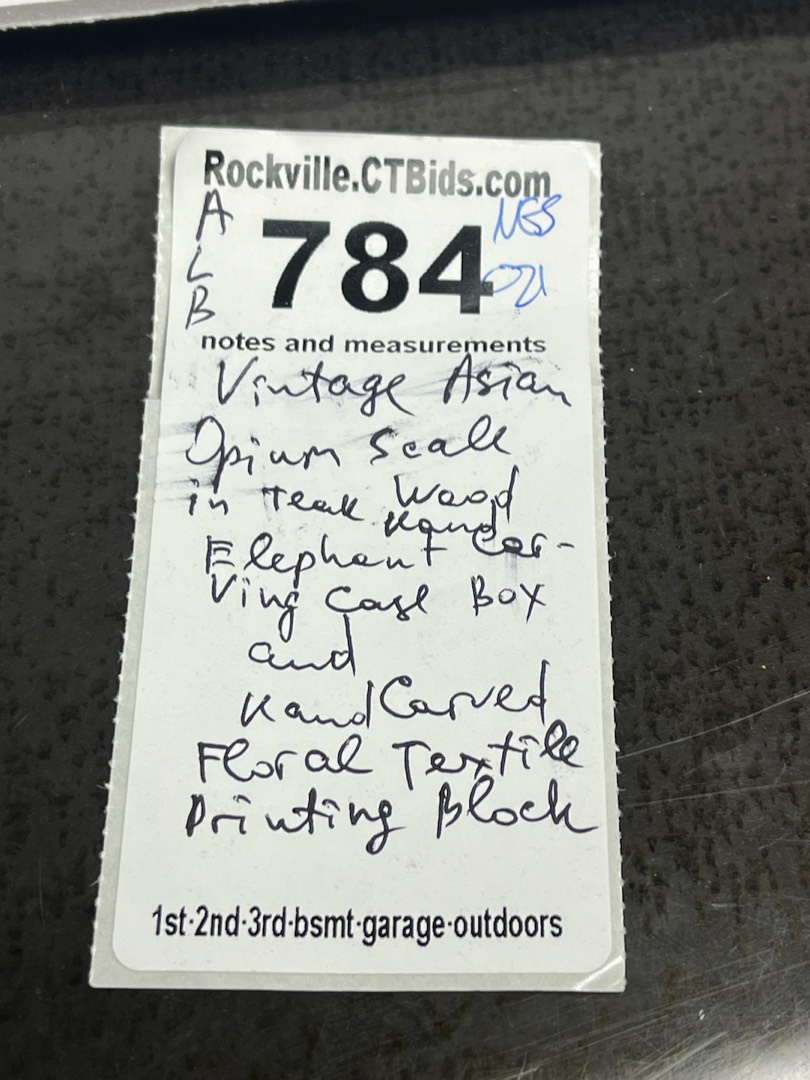 Rockville.CTBids.com
A
L
B
784
NES
021
notes and measurements
Vintage Asian
Opium Scale
in Teak Wood
Hand
Elephant Car-
ving Case Box
and
Hand Carved
Floral Textile
Printing Block
1st·2nd·3rd·bsmt·garage·outdoors